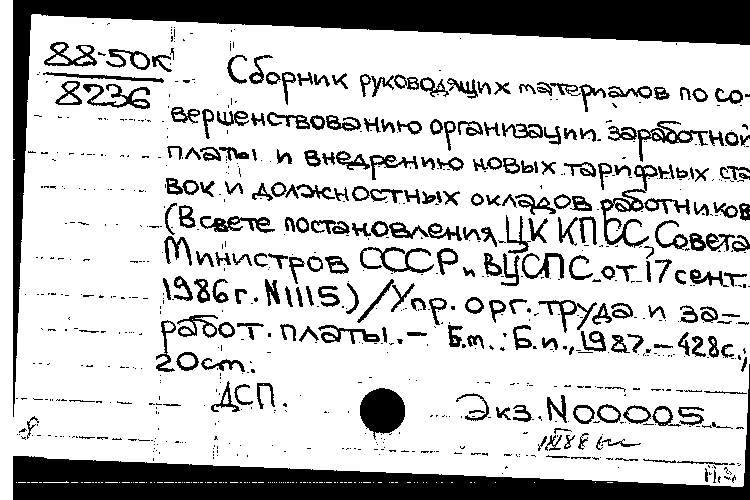 88-50к
8236
Сборник руководящих материалов по со-
вершенствованию организации заработной
платы и внедрению новых тарифных ста
вок и должностных окладов работников
(В свете постановления ЦК КПСС, Совета
Министров СССР и ВЦСПС от 17 сент.
1986 г. N1115.) / Упр. орг. труда и за-
работ. платы. – Б.м.: Б.и., 1987. – 428с.;
20 см.
ДСП.
Экз. N00005.
8